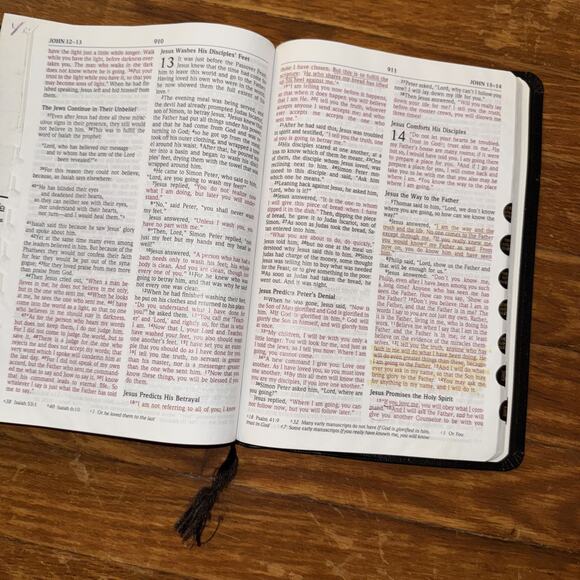 JOHN 12–13
910
have the light just a little while longer. Walk
while you have the light, before darkness over-
takes you. The man who walks in the dark
does not know where he is going. 36Put your
trust in the light while you have it, so that you
may become sons of light." When he had fin-
ished speaking, Jesus left and hid himself from
them.
The Jews Continue in Their Unbelief
37Even after Jesus had done all these mirac-
ulous signs in their presence, they still would
not believe in him. 38This was to fulfill the
word of Isaiah the prophet:
"Lord, who has believed our message
and to whom has the arm of the Lord
been revealed?"
39For this reason they could not believe,
because, as Isaiah says elsewhere:
40"He has blinded their eyes
and deadened their hearts,
so they can neither see with their eyes,
nor understand with their hearts,
nor turn—and I would heal them."
41Isaiah said this because he saw Jesus' glory
and spoke about him.
42Yet at the same time many even among
the leaders believed in him. But because of the
Pharisees they would not confess their faith
for fear they would be put out of the syna-
gogue; 43for they loved praise from men more
than praise from God.
44Then Jesus cried out, "When a man be-
lieves in me, he does not believe in me only,
but in the one who sent me. 45When he looks
at me, he sees the one who sent me. 46I have
come into the world as a light, so that no one
who believes in me should stay in darkness.
47"As for the person who hears my words
but does not keep them, I do not judge him.
For I did not come to judge the world, but to
save it. 48There is a judge for the one who
rejects me and does not accept my words; that
very word which I spoke will condemn him at
the last day. 49For I did not speak of my own
accord, but the Father who sent me command-
ed me what to say and how to say it. 50I know
that his command leads to eternal life. So
whatever I say is just what the Father has told
me to say."
Jesus Washes His Disciples' Feet
13 It was just before the Passover Feast.
Jesus knew that the time had come
for him to leave this world and go to the Father.
Having loved his own who were in the world,
he now showed them the full extent of his
love.
2The evening meal was being served, and
the devil had already prompted Judas Iscariot,
son of Simon, to betray Jesus. 3Jesus knew that
the Father had put all things under his power,
and that he had come from God and was re-
turning to God; 4so he got up from the meal,
took off his outer clothing, and wrapped a tow-
el around his waist. 5After that, he poured wa-
ter into a basin and began to wash his disciples'
feet, drying them with the towel that was
wrapped around him.
6He came to Simon Peter, who said to him,
"Lord, are you going to wash my feet?"
7Jesus replied, "You do not realize now
what I am doing, but later you will under-
stand."
8"No," said Peter, "you shall never wash
my feet."
Jesus answered, "Unless I wash you, you
have no part with me."
9"Then, Lord," Simon Peter replied, "not
just my feet but my hands and my head as
well!"
10Jesus answered, "A person who has had a
bath needs only to wash his feet; his whole
body is clean. And you are clean, though not
every one of you." 11For he knew who was
going to betray him, and that was why he said
not every one was clean.
12When he had finished washing their feet,
he put on his clothes and returned to his place.
"Do you understand what I have done for
you?" he asked them. 13"You call me 'Teach-
er' and 'Lord,' and rightly so, for that is what
I am. 14Now that I, your Lord and Teacher,
have washed your feet, you also should wash
one another's feet. 15I have set you an exam-
ple that you should do as I have done for you.
16I tell you the truth, no servant is greater
than his master, nor is a messenger greater
than the one who sent him. 17Now that you
know these things, you will be blessed if you
do them.
Jesus Predicts His Betrayal
18"I am not referring to all of you; I know
38 Isaiah 53:1
40 Isaiah 6:10
1 Or he loved them to the last
911
JOHN 13–14
those I have chosen. But this is to fulfill the
scripture: 'He who shares my bread has lifted
up his heel against me.'
19"I am telling you now before it happens,
so that when it does happen you will believe
that I am He. 20I tell you the truth, whoever
accepts anyone I send accepts me; and who-
ever accepts me accepts the one who sent
me."
21After he had said this, Jesus was troubled
in spirit and testified, "I tell you the truth, one
of you is going to betray me."
22His disciples stared at one another, at a
loss to know which of them he meant. 23One
of them, the disciple whom Jesus loved, was
reclining next to him. 24Simon Peter mo-
tioned to this disciple and said, "Ask him
which one he means."
25Leaning back against Jesus, he asked him,
"Lord, who is it?"
26Jesus answered, "It is the one to whom
I will give this piece of bread when I have
dipped it in the dish." Then, dipping the piece
of bread, he gave it to Judas Iscariot, son of
Simon. 27As soon as Judas took the bread, Sa-
tan entered into him.
"What you are about to do, do quickly,"
Jesus told him, 28but no one at the meal un-
derstood why Jesus said this to him. 29Since
Judas had charge of the money, some thought
Jesus was telling him to buy what was needed
for the Feast, or to give something to the poor.
30As soon as Judas had taken the bread, he
went out. And it was night.
Jesus Predicts Peter's Denial
31When he was gone, Jesus said, "Now is
the Son of Man glorified and God is glorified in
him. 32If God is glorified in him, God will
glorify the Son in himself, and will glorify him
at once.
33"My children, I will be with you only a
little longer. You will look for me, and just as
I told the Jews, so I tell you now: Where I am
going, you cannot come.
34"A new command I give you: Love one
another. As I have loved you, so you must love
one another. 35By this all men will know that
you are my disciples, if you love one another."
36Simon Peter asked him, "Lord, where are
you going?"
Jesus replied, "Where I am going, you can-
not follow now, but you will follow later."
37Peter asked, "Lord, why can't I follow you
now? I will lay down my life for you."
38Then Jesus answered, "Will you really lay
down your life for me? I tell you the truth,
before the rooster crows, you will disown me
three times!
Jesus Comforts His Disciples
14 "Do not let your hearts be troubled.
Trust in God; trust also in me. 2In
my Father's house are many rooms; if it were
not so, I would have told you. I am going there
to prepare a place for you. 3And if I go and
prepare a place for you, I will come back and
take you to be with me that you also may be
where I am. 4You know the way to the place
where I am going."
Jesus the Way to the Father
5Thomas said to him, "Lord, we don't know
where you are going, so how can we know the
way?"
6Jesus answered, "I am the way and the
truth and the life. No one comes to the Father
except through me. 7If you really knew me,
you would know my Father as well. From
now on, you do know him and have seen
him."
8Philip said, "Lord, show us the Father and
that will be enough for us."
9Jesus answered: "Don't you know me,
Philip, even after I have been among you such
a long time? Anyone who has seen me has
seen the Father. How can you say, 'Show us
the Father'? 10Don't you believe that I am in
the Father, and that the Father is in me? The
words I say to you are not just my own. Rather,
it is the Father, living in me, who is doing his
work. 11Believe me when I say that I am in the
Father and the Father is in me; or at least
believe on the evidence of the miracles them-
selves. 12I tell you the truth, anyone who has
faith in me will do what I have been doing. He
will do even greater things than these, because
I am going to the Father. 13And I will do what-
ever you ask in my name, so that the Son may
bring glory to the Father. 14You may ask me
for anything in my name, and I will do it.
Jesus Promises the Holy Spirit
15"If you love me, you will obey what I com-
mand. 16And I will ask the Father, and he will
give you another Counselor to be with you
18 Psalm 41:9
32 Many early manuscripts do not have If God is glorified in him.
1 Or You
trust in God
7 Some early manuscripts If you really have known me, you will know